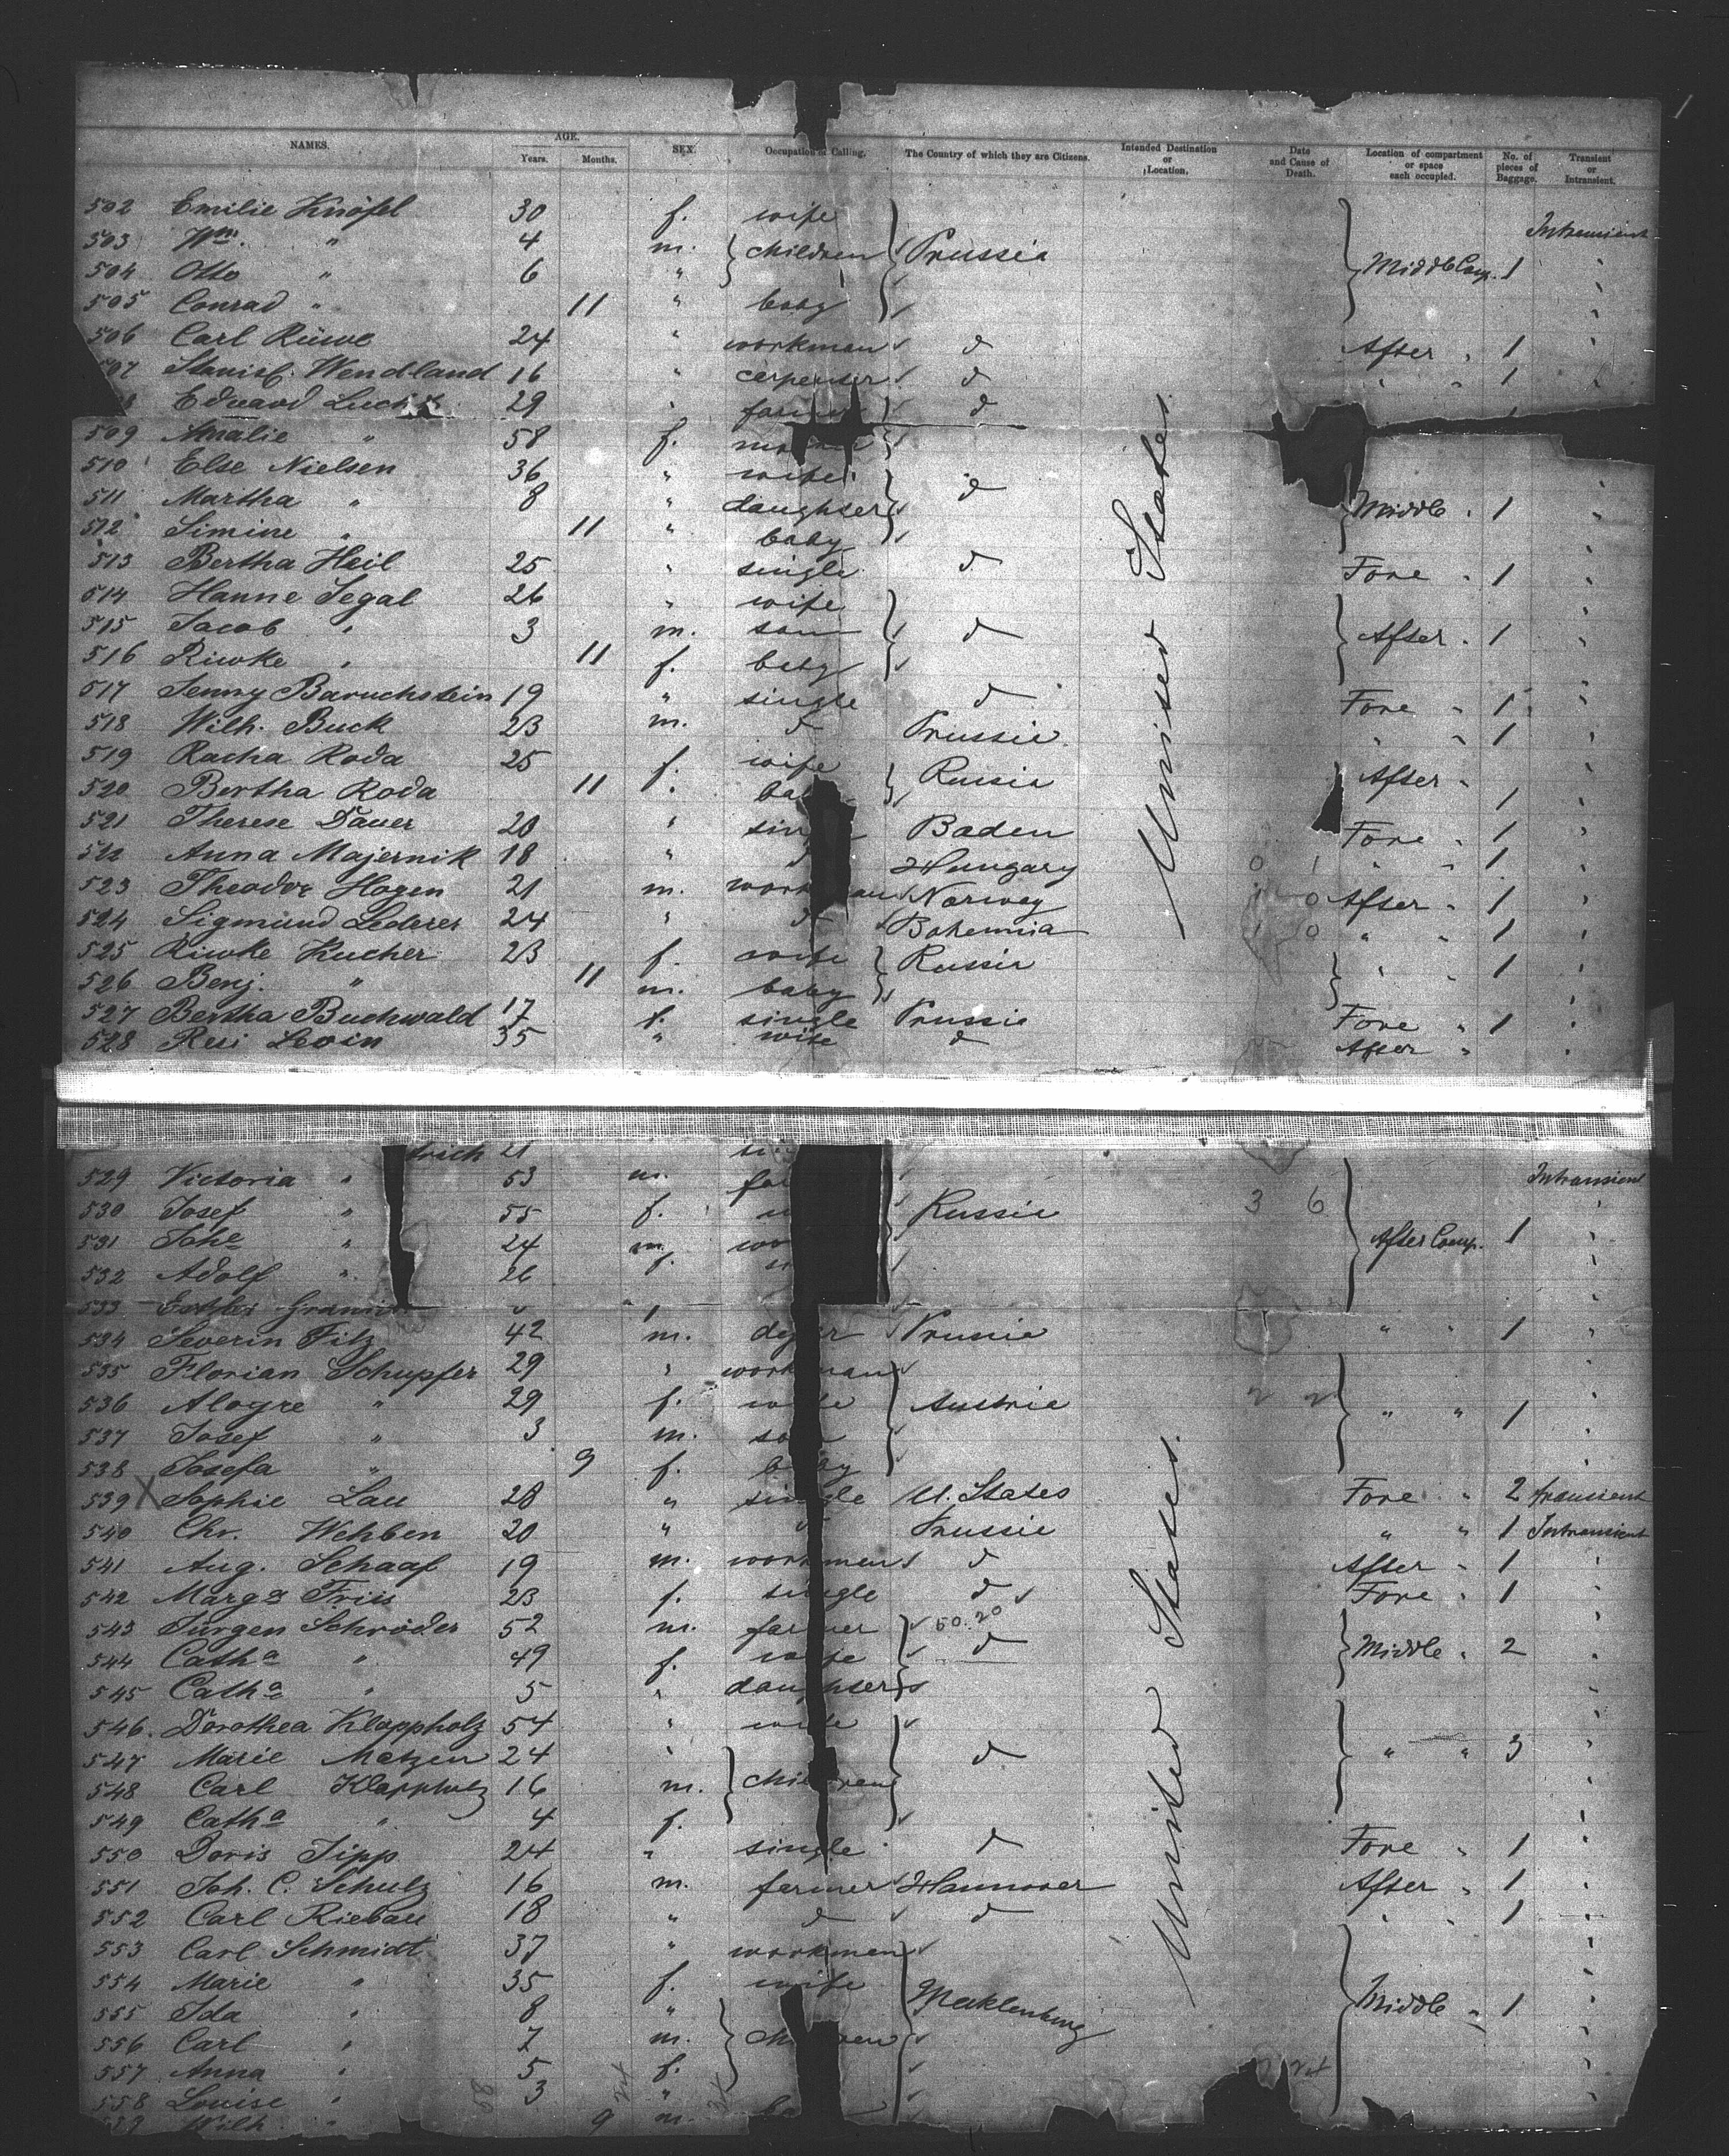 NAMES. AGE. Years. Months. SEX. Occupation or Calling. The Country of which they are Citizens. Intended Destination or Location. Date and Cause of Death. Location of compartment or space each occupied. No. of pieces of Baggage. Transient or Intransient.
502 Emilie Knöfel 30 f. wife Intransient
503 Wm. " 4 m. children Prussia
504 Otto " 6 " Middle Comp. 1 "
505 Conrad " 11 " baby "
506 Carl Rüwe 24 " workman d After " 1 "
507 Stanisl. Wendland 16 " carpenter d " " 1 "
Eduard 29 " farmer d
509 Amalie " 58 f.
510 Else Nielsen 36 " wife d
511 Martha " 8 " daughter Middle " 1 "
512 Simine " 11 " baby
513 Bertha Heil 25 " single d Fore " 1 "
514 Hanne Segal 26 " wife
515 Jacob " 3 m. son d After " 1 "
516 Riwke " 11 f. baby "
517 Jenny Baruchstein 19 " single d Fore " 1 "
518 Wilh. Buck 23 m. d Prussia " " 1 "
519 Racha Roda 25 f. wife Russia After "
520 Bertha Roda 11 f. 1 "
521 Therese Dauer 20 " Baden Fore " 1 "
522 Anna Majernik 18 " Hungary 0 1 " " 1 "
523 Theodor Hogen 21 m. workman Norway 0 After " 1 "
524 Sigmund Lederer 24 " d Bohemia 1 0 " " 1 "
525 Riwke Kucher 23 f. wife Russia " " 1 "
526 Benj. " 11 m. baby
527 Bertha Buchwald 17 f. single Prussia Fore " 1 "
528 Resi Levin 35 " wife d After " "
United States.
21
529 Victoria " 53 m. Intransient
530 Josef " 55 f. Russia 3 6 "
531 Johe " 24 m. After Comp. 1 "
532 Adolf " 26 f. "
533
534 Severin Filz 42 m. Prussia " " 1 "
535 Florian Schupfer 29 " workman "
536 Aloyre " 29 f. wife Austria 2 2 " " 1 "
537 Josef " 3 m. son "
538 Josefa " 9 f. baby
539 X Sophie Lau 28 " single U. States Fore " 2 transient
540 Chr. Wehben 20 " Prussia " " 1 Intransient
541 Aug. Schaaf 19 m. workman d After " 1 "
542 Marga Friis 23 f. single d Fore " 1 "
543 Jürgen Schröder 52 m. farmer 50.20
544 Catha " 49 f. wife d Middle " 2 "
545 Catha " 5 " daughter "
546. Dorothea Klappholz 54 " wife
547 Marie Metzen 24 " children d " " 3 "
548 Carl Klappholz 16 m. "
549 Catha " 4 f. "
550 Doris Tipp 24 " single d Fore " 1 "
551 Joh. C. Schulz 16 m. farmer Hannover After " 1 "
552 Carl Riebau 18 " d d " " 1 "
553 Carl Schmidt 37 " workman "
554 Marie " 35 f. wife Mecklenburg "
555 Ida " 8 " children Middle " 1 "
556 Carl " 7 m. "
557 Anna " 5 f. "
558 Louise " 3 " "
Wilh. " 9 m.
United States.